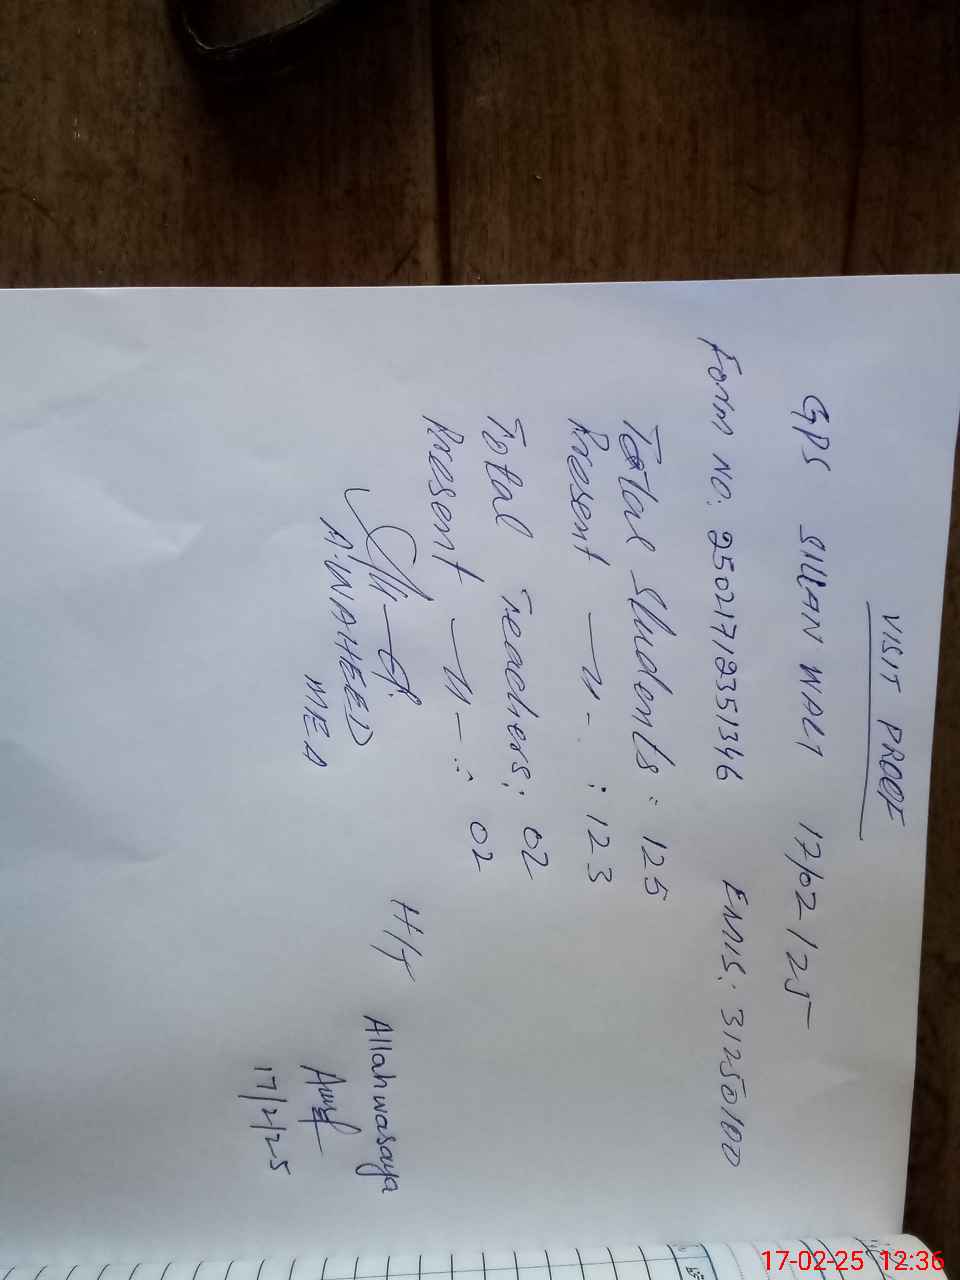 VISIT PROOF
GPS SILLAN WALI 17/02/25
Form NO. 25021712351346 EMIS: 31250100
Total Students : 125
Present —〃— : 123
Total Teachers : 02
Present —〃— : 02
A.WAHEED
MEA
H/T
Allahwasaya
17/2/25
17-02-25 12:36